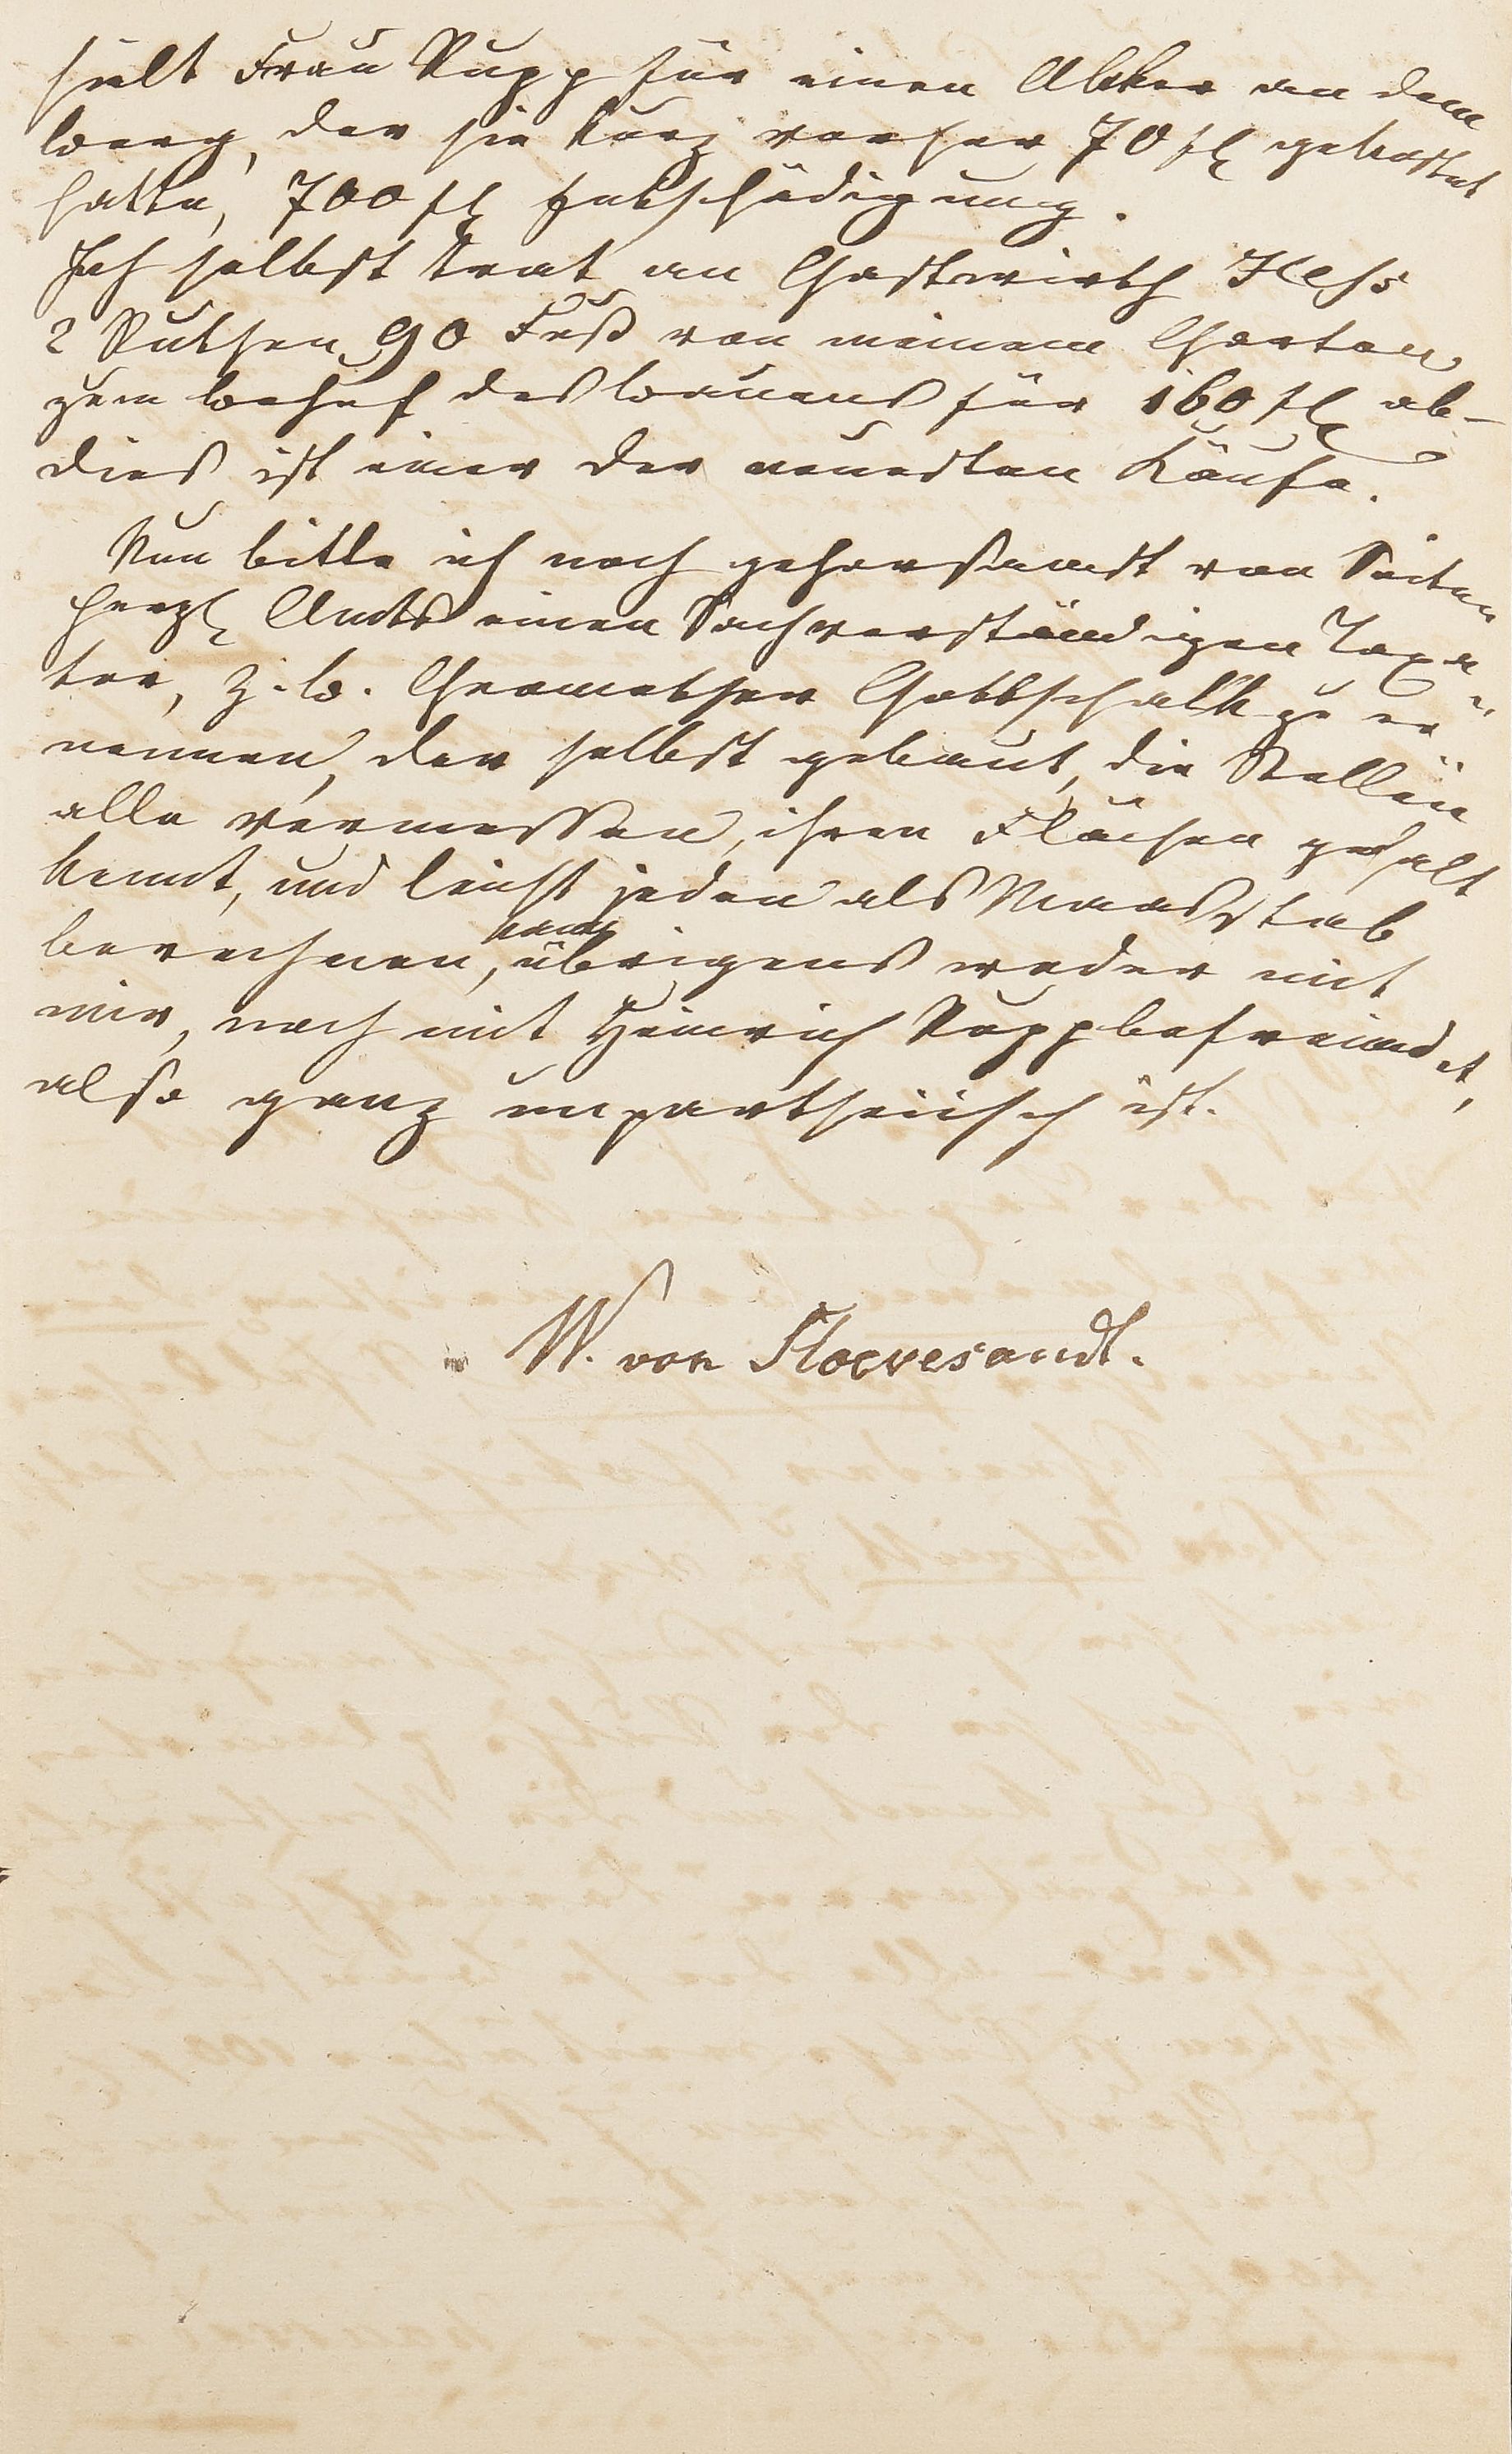 hielt Frau Rupp für einen Acker an dem
Berg, der sie kurz vorher 70 fl gekostet
hatte, 700 fl Entschädigung.
Ich selbst trat an Gastwirth Hess
2 Ruthen 90 Fuß von meinem Garten
zum Behuf des Bauens für 160 fl ab –
dies ist einer der neuesten Käufe.
Nun bitte ich noch gehorsamst von Seiten
Herzl Amts einen Sachverständigen Taxa-
tor, z. B. Geomether Gottschalk zu er-
nennen, der selbst gebaut, die Stellen
alle vermessen, ihren Flächengehalt
kennt, und leicht jeden als Maasstab
berechnen, kann übrigens weder mit
mir, noch mit Heinrich Rupp befreundet,
also ganz unpartheiisch ist.
W. von Stocvesandt.